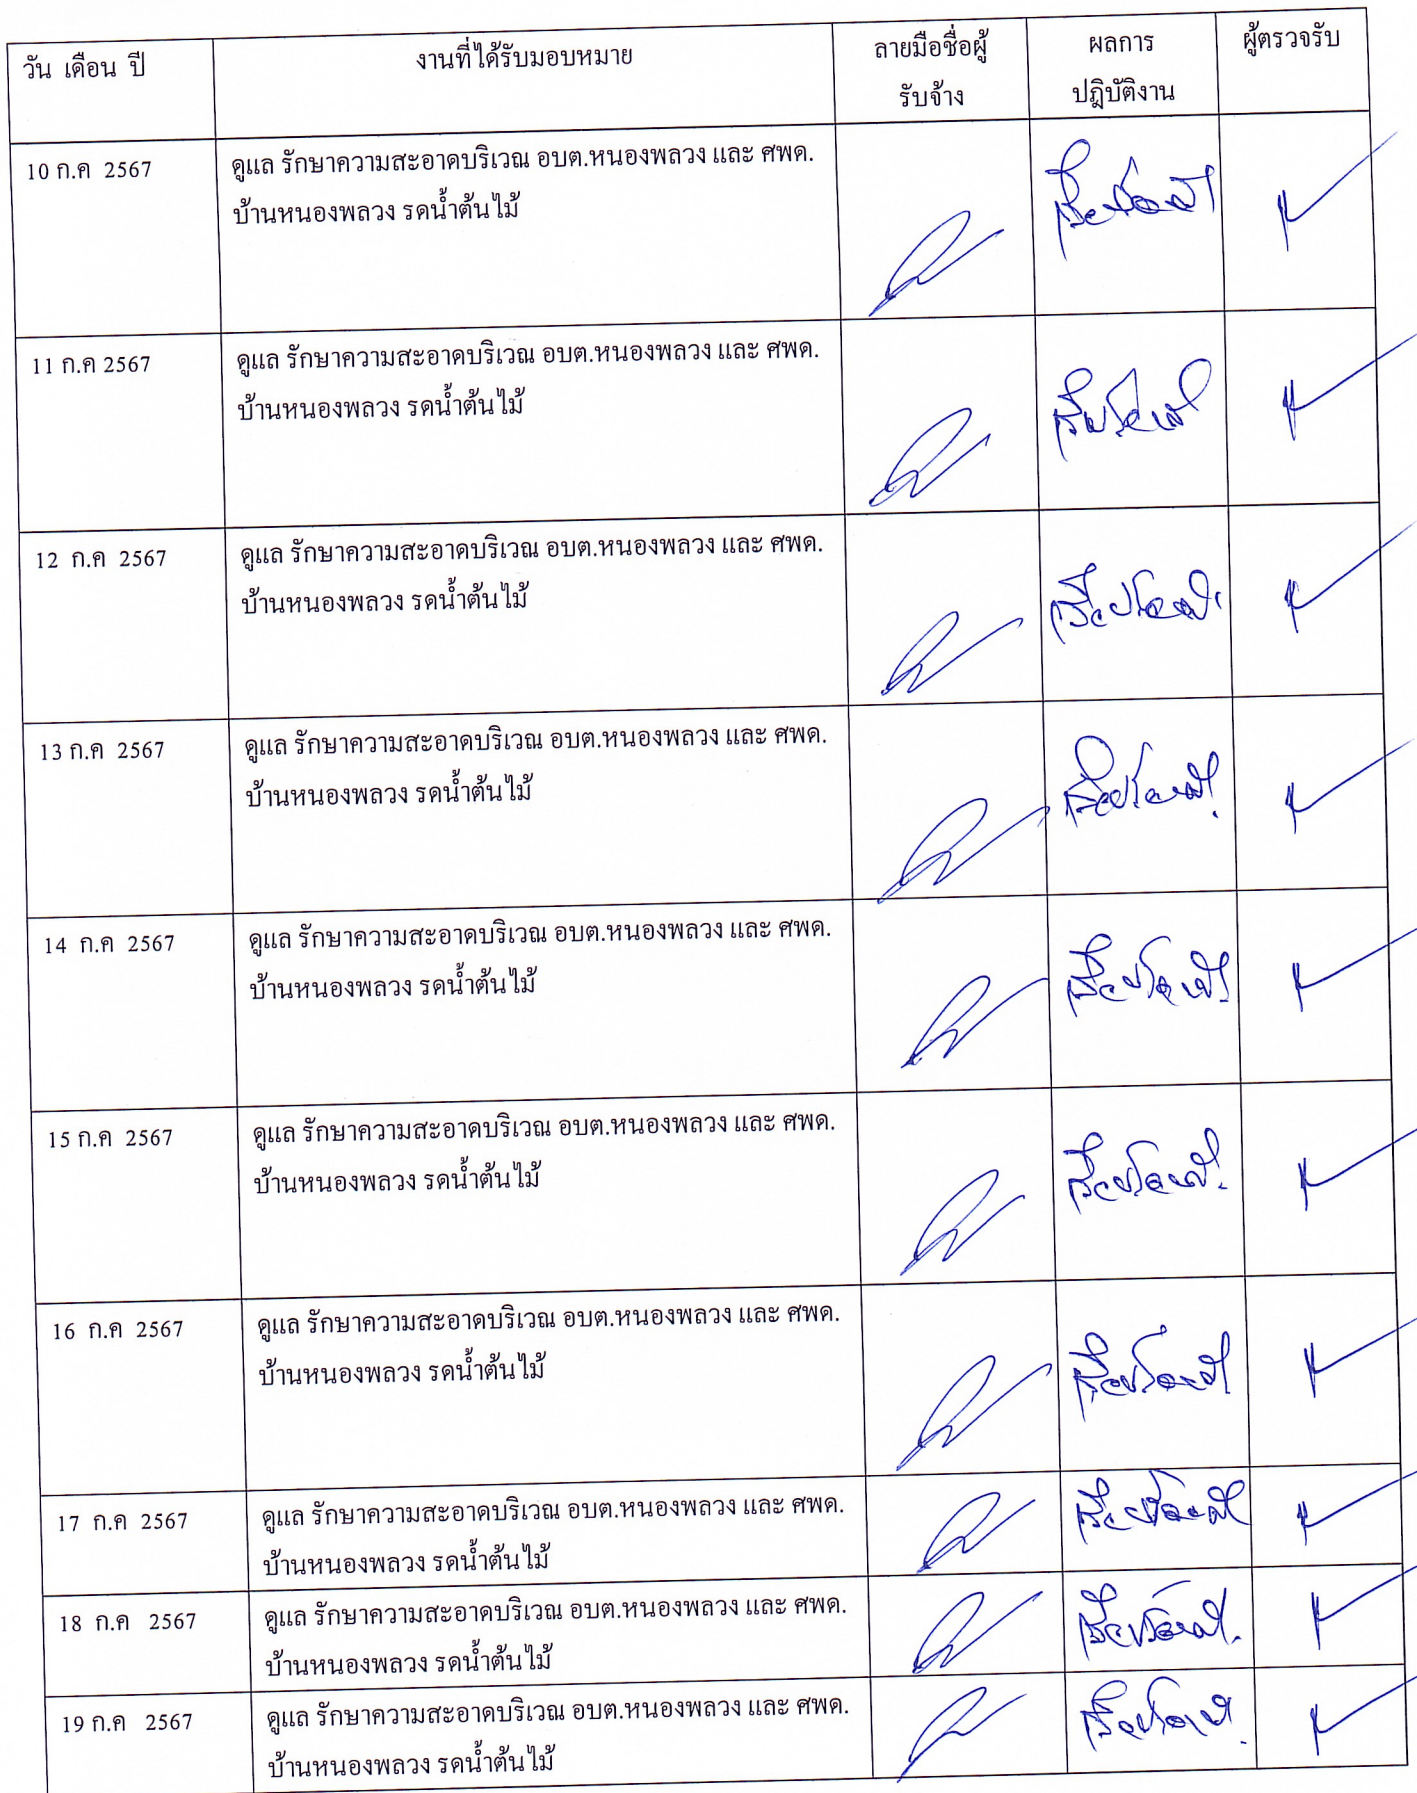 วัน เดือน ปี
งานที่ได้รับมอบหมาย
ลายมือชื่อผู้
รับจ้าง
ผลการ
ปฎิบัติงาน
ผู้ตรวจรับ
10 ก.ค 2567
ดูแล รักษาความสะอาดบริเวณ อบต.หนองพลวง และ ศพด.
บ้านหนองพลวง รดน้ำต้นไม้
11 ก.ค 2567
ดูแล รักษาความสะอาดบริเวณ อบต.หนองพลวง และ ศพด.
บ้านหนองพลวง รดน้ำต้นไม้
12 ก.ค 2567
ดูแล รักษาความสะอาดบริเวณ อบต.หนองพลวง และ ศพด.
บ้านหนองพลวง รดน้ำต้นไม้
13 ก.ค 2567
ดูแล รักษาความสะอาดบริเวณ อบต.หนองพลวง และ ศพด.
บ้านหนองพลวง รดน้ำต้นไม้
14 ก.ค 2567
ดูแล รักษาความสะอาดบริเวณ อบต.หนองพลวง และ ศพด.
บ้านหนองพลวง รดน้ำต้นไม้
15 ก.ค 2567
ดูแล รักษาความสะอาดบริเวณ อบต.หนองพลวง และ ศพด.
บ้านหนองพลวง รดน้ำต้นไม้
16 ก.ค 2567
ดูแล รักษาความสะอาดบริเวณ อบต.หนองพลวง และ ศพด.
บ้านหนองพลวง รดน้ำต้นไม้
17 ก.ค 2567
ดูแล รักษาความสะอาดบริเวณ อบต.หนองพลวง และ ศพด.
บ้านหนองพลวง รดน้ำต้นไม้
18 ก.ค 2567
ดูแล รักษาความสะอาดบริเวณ อบต.หนองพลวง และ ศพด.
บ้านหนองพลวง รดน้ำต้นไม้
19 ก.ค 2567
ดูแล รักษาความสะอาดบริเวณ อบต.หนองพลวง และ ศพด.
บ้านหนองพลวง รดน้ำต้นไม้